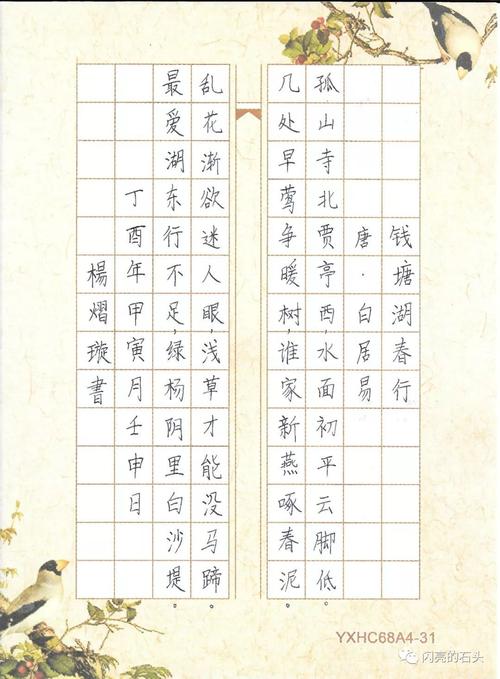 钱塘湖春行
唐·白居易
孤山寺北贾亭西，水面初平云脚低。
几处早莺争暖树，谁家新燕啄春泥。
乱花渐欲迷人眼，浅草才能没马蹄。
最爱湖东行不足，绿杨阴里白沙堤。
丁酉年甲寅月壬申日
楊熠璇書
YXHC68A4-31
闪亮的石头